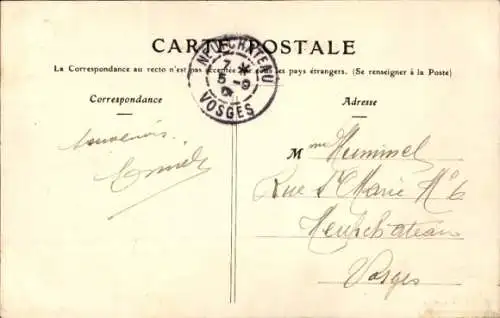 CARTE POSTALE
La Correspondance au recto n'est pas acceptée par tous les pays étrangers. (Se renseigner à la Poste)
NEUFCHATEAU
7 *
5 - 9
VOSGES
Correspondance
Adresse
Souvenirs
M me Hummel
Rue Ste Marie No 6
Neufchateau
Vosges